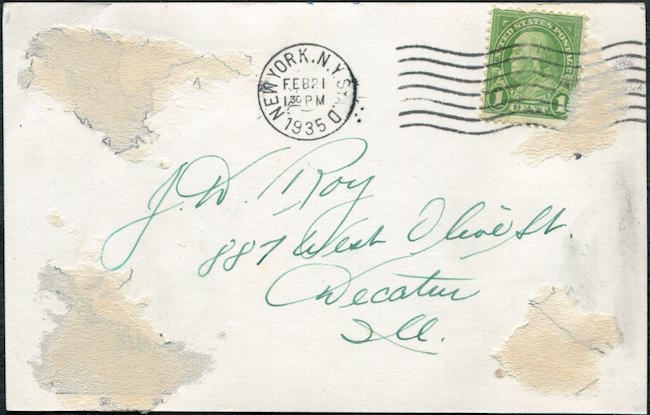 NEW YORK, N.Y. STA. D
FEB 21
1 30 PM
1935
UNITED STATES POSTAGE
1 CENT 1
J. W. Roy
887 West Olive St.
Decatur
Ill.